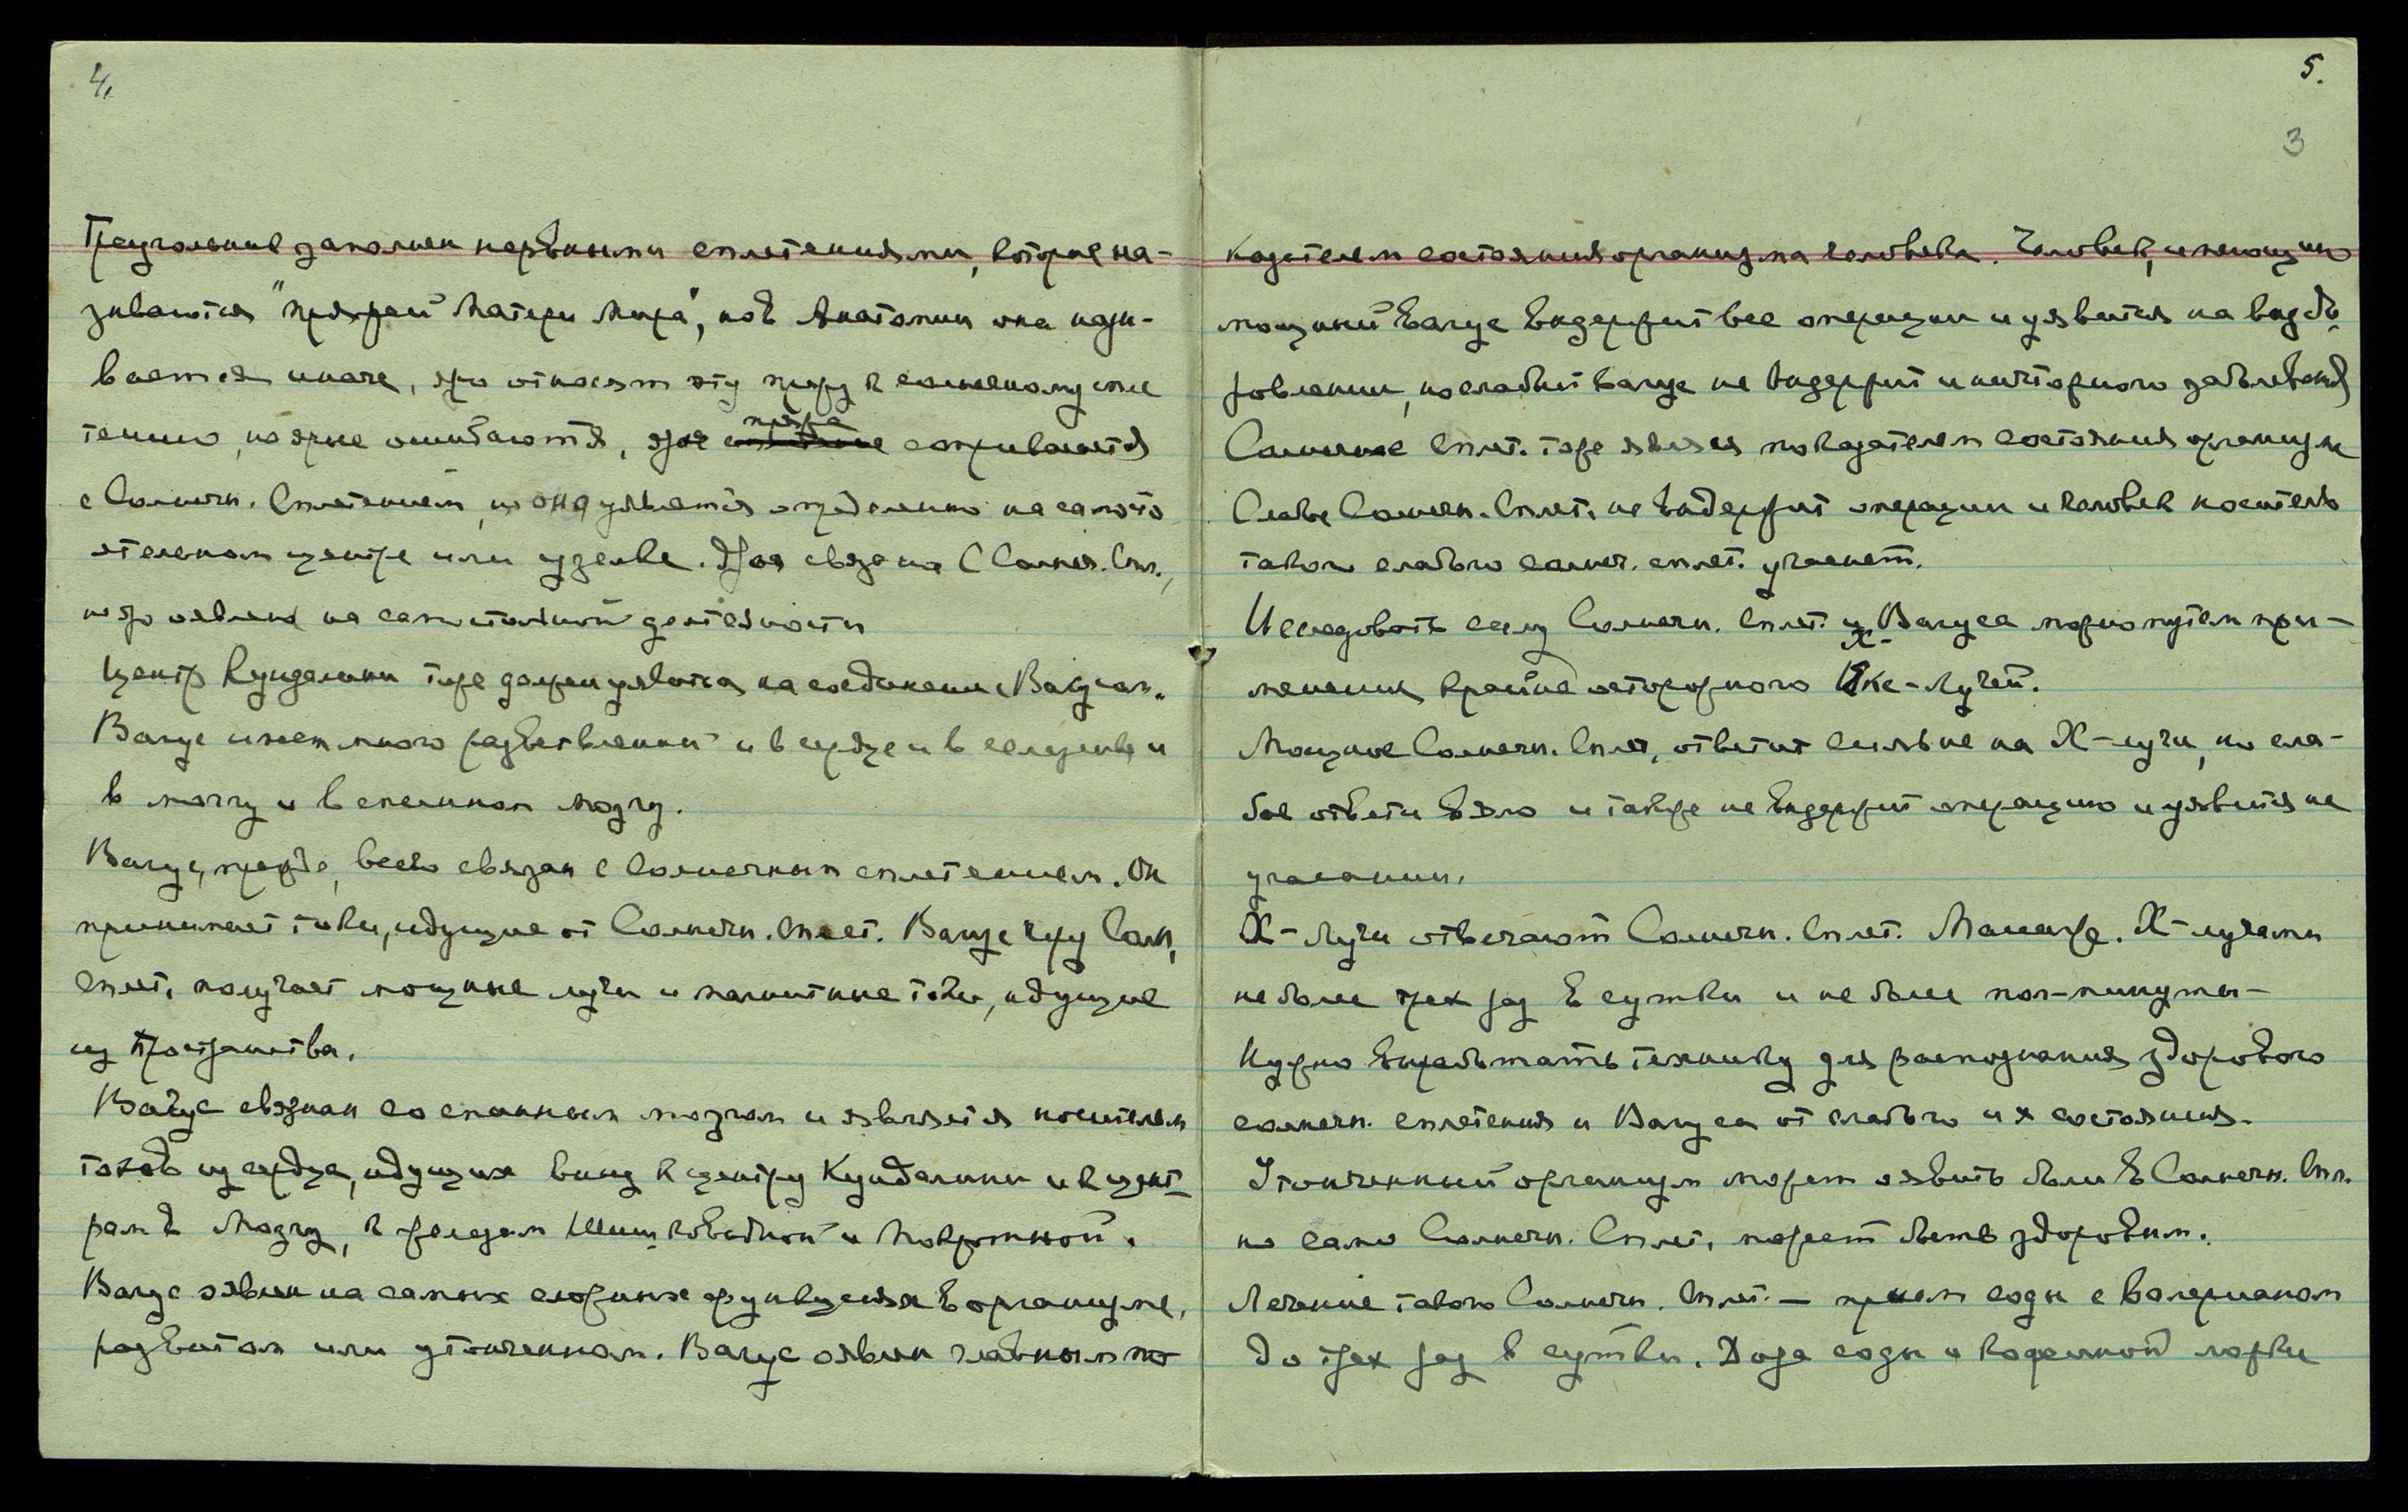 4.
Треугольник заполнен нервными сплетениями, которые на-
зываются "пряжей Матери Мира", но в Анатомии она назы-
вается иначе, относят эту пряжу к солнечному спле
тению, но ошибаются, пряжа соприкасается
с Солнечн. Сплетением, но она уявляется определенно на самосто
ятельном центре или узелке. связана с Солнеч. Спл.,
но на самостоятельной деятельности
Центр Кундалини тоже должен уявиться на соединении с Вагусом.
Вагус имеет много разветвлений и в сердце и в селезенке и
в мозгу и в спинном мозгу.
Вагус, прежде, всего связан с Солнечным сплетением. Он
принимает токи, идущие от Солнечн. Сплет. Вагус через Солн.
Сплет. получает мощные лучи и магнитные токи, идущие
из Пространства.
Вагус связан со спинным мозгом и является носителем
токов из сердца, идущих вниз к центру Кундалини и к цент-
рам в Мозгу, к железам Шишковидной и Мокротной.
Вагус явлен на самых сложных функциях в организме,
развитом или утонченном. Вагус явлен главным по
5.
3
казателем состояния организма человека. Человек, имеющий
мощный Вагус выдержит все операции и уявится на выздо
ровлении, но слабый вагус не выдержит и ничтожного заболевания
Солнечное Сплет. тоже явлен показателем состояния организма
Слабое Солнечн. Сплет. не выдержит операции и человек носитель
такого слабого солнеч. сплет. угаснет.
Исследовать силу Солнечн. Сплет. и Вагуса можно путем при-
менения крайне осторожного Х-Лучей.
Мощное Солнечн. Сплет. ответит сильнее на Х-лучи, но сла-
бое ответит вяло и также не выдержит операцию и уявится на
угасании.
Х-Лучи отвечают Солнечн. Сплет. Массаж Х-лучами
не более трех раз в сутки и не более пол-минуты-
Нужно выработать технику для распознания здорового
солнечн. сплетения и Вагуса от слабого их состояния.
Утонченный организм может явить боли в Солнечн. Спл.
но само Солнечн. Сплет. может быть здоровым.
Лечение такого Солнечн. Сплет. — прием соды с валерианом
до трех раз в сутки. Доза соды и кофейной ложки